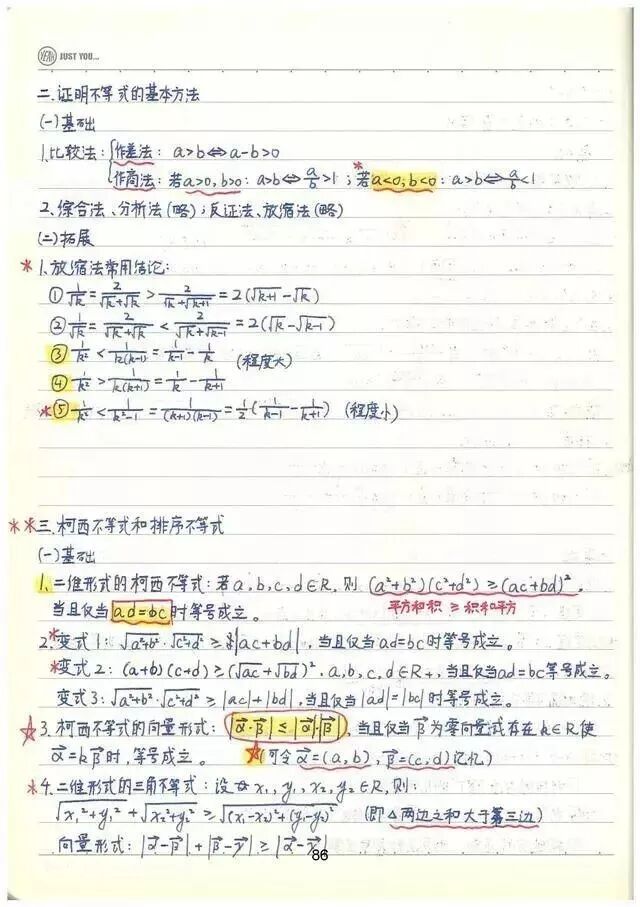 YEAH JUST YOU...
二.证明不等式的基本方法
(一)基础
1.比较法:{作差法: a>b⇔a-b>0
作商法: 若a>0,b>0: a>b⇔a/b>1 ; *若a<0,b<0: a>b⇔a/b<1
2.综合法、分析法(略);反证法、放缩法(略)
(二)拓展
*1.放缩法常用结论:
①1/√k=2/(√k+√k)>2/(√k+√(k+1))=2(√(k+1)-√k)
②1/√k=2/(√k+√k)<2/(√k+√(k-1))=2(√k-√(k-1))
③1/k²<1/k(k-1)=1/(k-1)-1/k (程度大)
④1/k²>1/k(k+1)=1/k-1/(k+1)
*⑤1/k²<1/(k²-1)=1/(k+1)(k-1)=1/2(1/(k-1)-1/(k+1)) (程度小)
**三.柯西不等式和排序不等式
(一)基础
1.二维形式的柯西不等式:若a,b,c,d∈R,则 (a²+b²)(c²+d²)≥(ac+bd)²,
当且仅当ad=bc时等号成立. 平方和积≥积和平方
2.*变式1:√(a²+b²)·√(c²+d²)≥|ac+bd|,当且仅当ad=bc时等号成立。
*变式2:(a+b)(c+d)≥(√ac+√bd)².a,b,c,d∈R+,当且仅当ad=bc等号成立.
变式3:√(a²+b²)·√(c²+d²)≥|ac|+|bd|,当且仅当|ad|=|bc|时等号成立。
☆3.柯西不等式的向量形式:|α⃗·β⃗|≤|α⃗|·|β⃗|,当且仅当β⃗为零向量或存在k∈R,使
α⃗=kβ⃗时,等号成立。 ☆(可令α⃗=(a,b),β⃗=(c,d)记忆)
*4.二维形式的三角不等式:设x₁,y₁,x₂,y₂∈R,则:
√(x₁²+y₁²)+√(x₂²+y₂²)≥√((x₁-x₂)²+(y₁-y₂)²) (即△两边之和大于第三边)
向量形式:|α⃗-β⃗|+|β⃗-γ⃗|≥|α⃗-γ⃗|
86